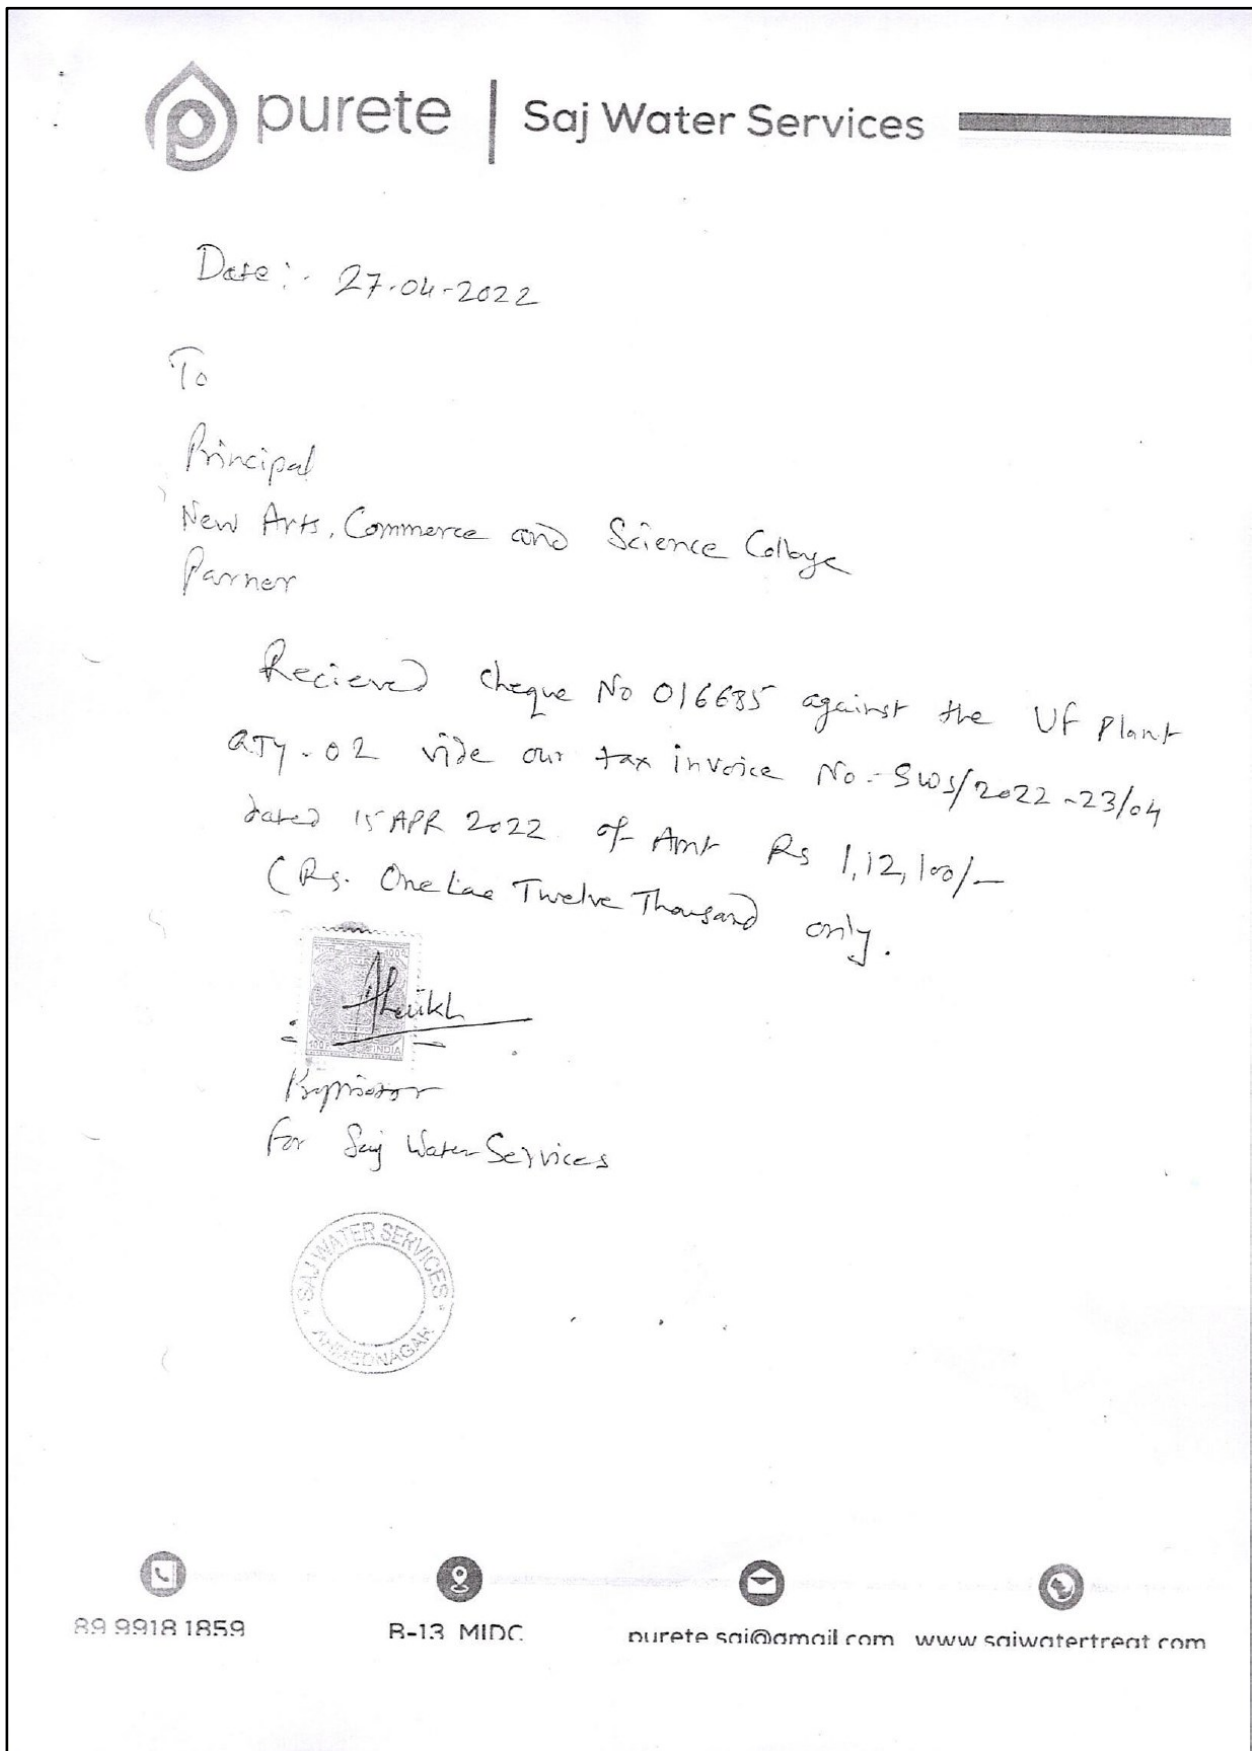 purete | Saj Water Services
Date:- 27-04-2022
To
Principal
New Arts, Commerce and Science College
Parner
Recieved cheque No 016685 against the UF Plant
QTY-02 vide our tax invoice No-SWS/2022-23/04
dated 15 APR 2022 of Amt Rs 1,12,100/-
(Rs. One Lac Twelve Thousand only.
100
Shaikh
100 INDIA
Proprietor
For Saj Water Services
SAJ WATER SERVICES
AHMEDNAGAR
89 9918 1859
B-13 MIDC
purete.saj@gmail.com
www.sajwatertreat.com